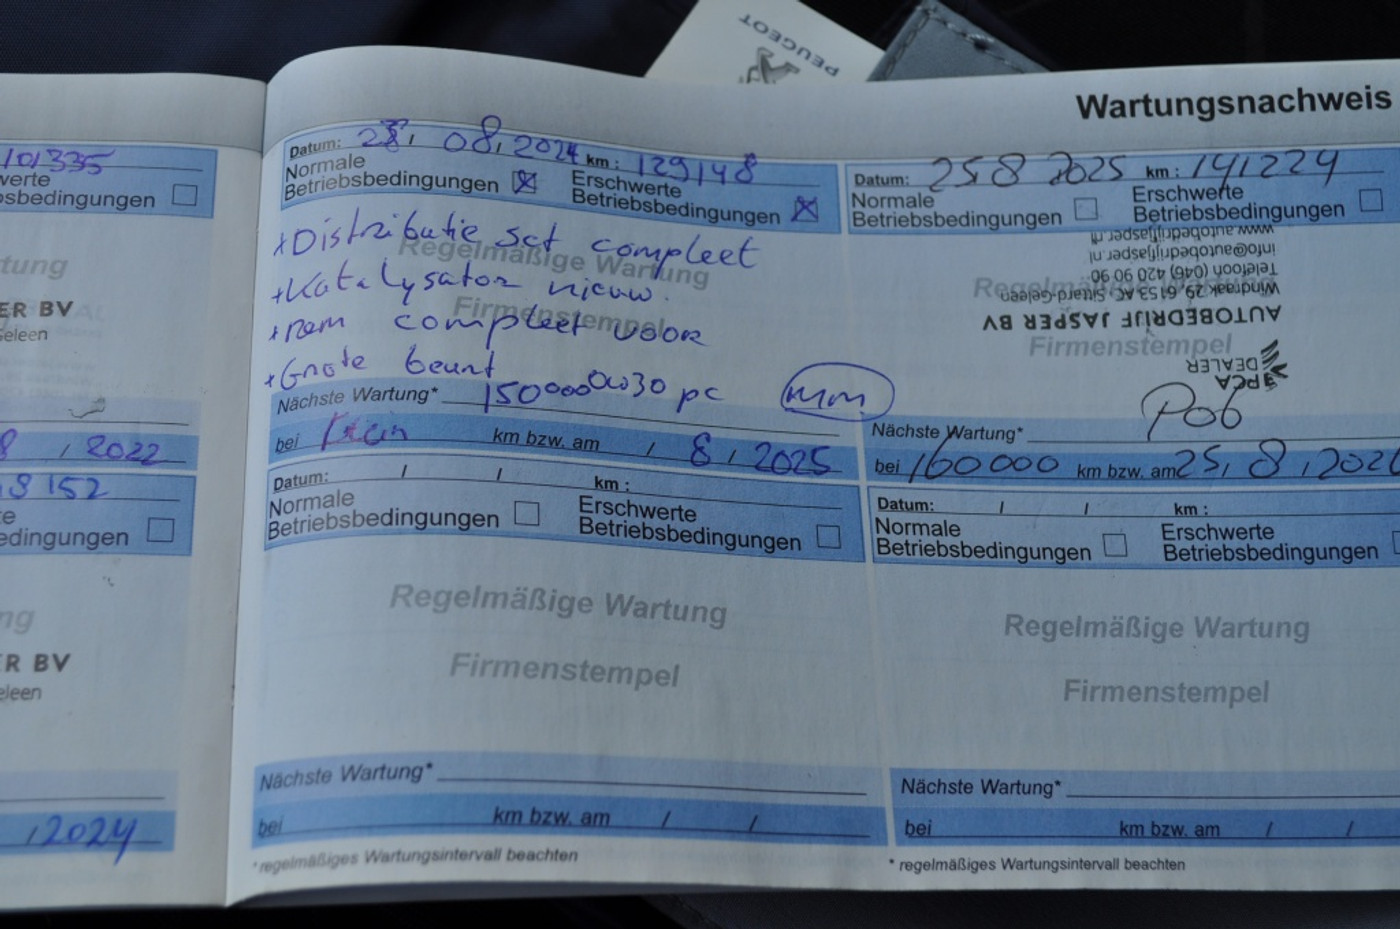 PEUGEOT
Wartungsnachweis
101335
werte
sbedingungen
tung
ER BV
Geleen
8 / 2022
8 152
te
edingungen
ng
R BV
eleen
, 2024
Datum: 08, 2024 km : 129148
Normale
Betriebsbedingungen
Erschwerte
Betriebsbedingungen
+ Distributie set compleet
Regelmäßige Wartung
+ Katalysator nieuw.
Firmenstempel
+ Rem compleet voor
+ Grote beurt
Nächste Wartung*
150000
0W30 pc
mm
bei
km bzw. am / 8 , 2025
Datum: / / km :
Normale
Betriebsbedingungen
Erschwerte
Betriebsbedingungen
Regelmäßige Wartung
Firmenstempel
Nächste Wartung*
bei km bzw. am / /
*regelmäßiges Wartungsintervall beachten
Datum: 25 8 2025 km : 141224
Normale
Betriebsbedingungen
Erschwerte
Betriebsbedingungen
Regelmäßige Wartung
Firmenstempel
PCA
DEALER
AUTOBEDRIJF JASPER BV
Windraak 29, 6153 AC Sittard-Geleen
Telefoon (046) 420 90 90
info@autobedrijfjasper.nl
www.autobedrijfjasper.nl
Nächste Wartung*
bei 160000 km bzw. am 25, 8, 202
Datum: / / km :
Normale
Betriebsbedingungen
Erschwerte
Betriebsbedingungen
Regelmäßige Wartung
Firmenstempel
Nächste Wartung*
bei km bzw. am / /
* regelmäßiges Wartungsintervall beachten